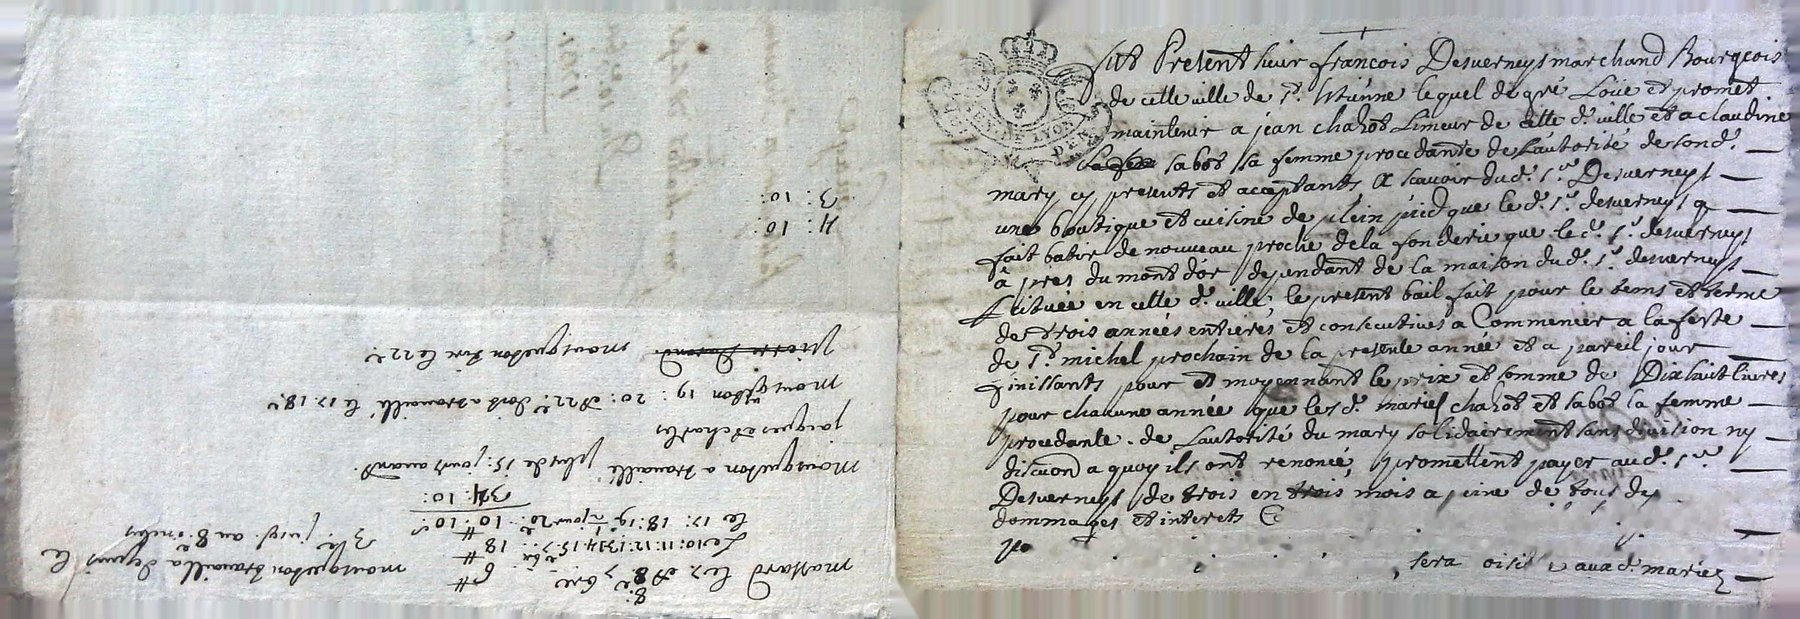 fut Present sieur francois Desverneys marchand Bourgeois
de cette ville de St. Etienne lequel de gré Loüe et promet
maintenir a jean chazot Limeur de cette d. ville et a claudine
sabot sa femme procedante de Lautorité de sond.
mary cy presents et acceptants A scavoir dud. Sr. Desverneys
une boutique et cuisine de plein pied que le d. Sr. desverneys a
fait batir de nouveau proche de la fonderie que le d. Sr. desverneys
à pres du mont d'or dependant de la maison dud. Sr. desverneys
scituée en cette d. ville le present bail fait pour le tems et terme
de trois années entieres et consecutives a Commencer a la feste
de St. michel prochain de la presente année et a pareil jour
finissants pour et moyennant le prix et somme de Dixhuit livres
pour chacune année que lesd. mariés chazot et sabot sa femme
procedante de Lautorité du mary solidairement sans division ny
discuon a quoy ils ont renoncé, promettent payer aud. Sr.
Desverneys de trois en trois mois a peine de tous dep
dommages et interets &
sera oisif aux d. mariez
LYON
massard le 7 et 8
mousqueton travailla depuis le
Le 10: 11: 12: 13: 14: 15: 7: 18
le 17: 18: 19: 10: 10:
34: 10:
mousqueton a travaillé plus de 15: jours avant.
jacques et charles
20: et 22: dont a travaillé le 17. 18.
mousqueton
4: 10:
3: 10: